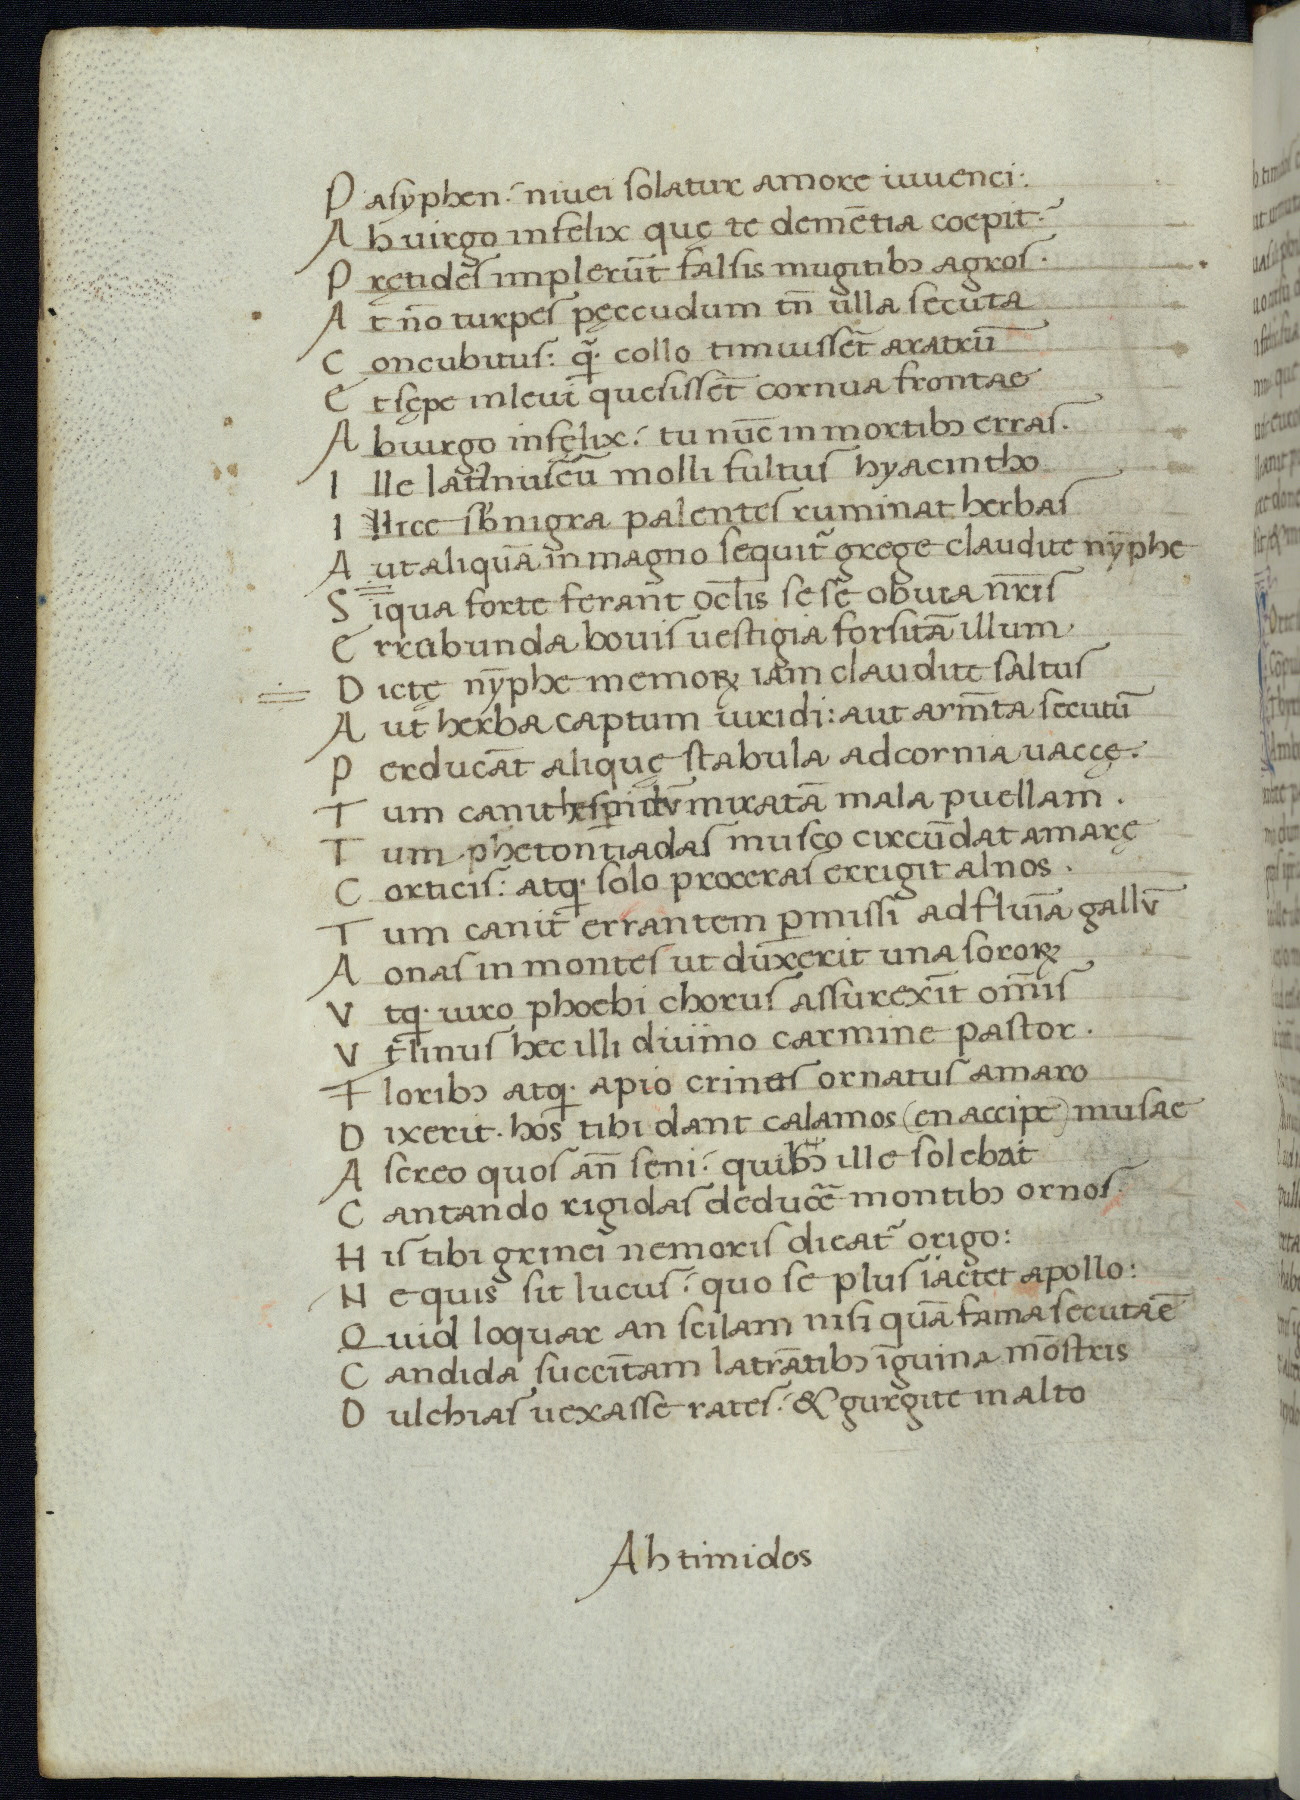 P asyphen ·́ niuei solatur amore iuuenci:
A h uirgo infelix quę te demētia coepit ·́
P rętides impleruñt falsis mugitibꝫ agros ·
A t ño turpes pęccudum tñ ulla secuta
C oncubitus: q̃ꝫ· collo timuisset̄ aratrū
E t sępe in leui quesisset̄ cornua frontae
A h uirgo infęlix ·́ tu nūc in mortibꝫ erras ·
I lle latus niueū molli fultus hyacintho
I llice sƀ nigra palentes ruminat herbas
A ut aliquā in magno sequit᷑ grege claudite nȳphe
S iqua forte ferant̄ ocl̄is sesē obuia nr̄is
E rrabunda bouis uestigia forsitā illum
D ictę nȳphe memoꝝ iam claudite saltus
A ut herba captum uiridi: aut arm̄ta secutū
P erducāt aliquę stabula ad cornia uaccę ·
T um canit hesperidū miratā mala puellam ·
T um phetontiadas musco circūdat amarę
C orticis: atqꝫ· solo proceras errigit alnos ·
T um canit errantem ꝑmissi ad flūia gallū
A onas in montes ut duxerit una sororꝝ
V tqꝫ· uiro phoebi chorus assurexīt om̄is
V t linus hec illi diuino carmine pastor ·
F loribꝫ atqꝫ· apio crines ornatus amaro
D ixerit · hos tibi dant calamos (en accipe) musae
A screo quos añ seni ·́ quibꝫ ille solebat
C antando rigidas deducẽ montibꝫ ornos ·
H is tibi grinei nemoris dicat᷑ origo:
N e quis sit lucus ·́ quo se plus iactet apollo:
Q uid loquar an scilam nisi quā fama secuta ē
C andida succītam latrātibꝫ īguina mōstris
D ulchias uexasse rates ·́ & gurgite in alto
Ah timidos